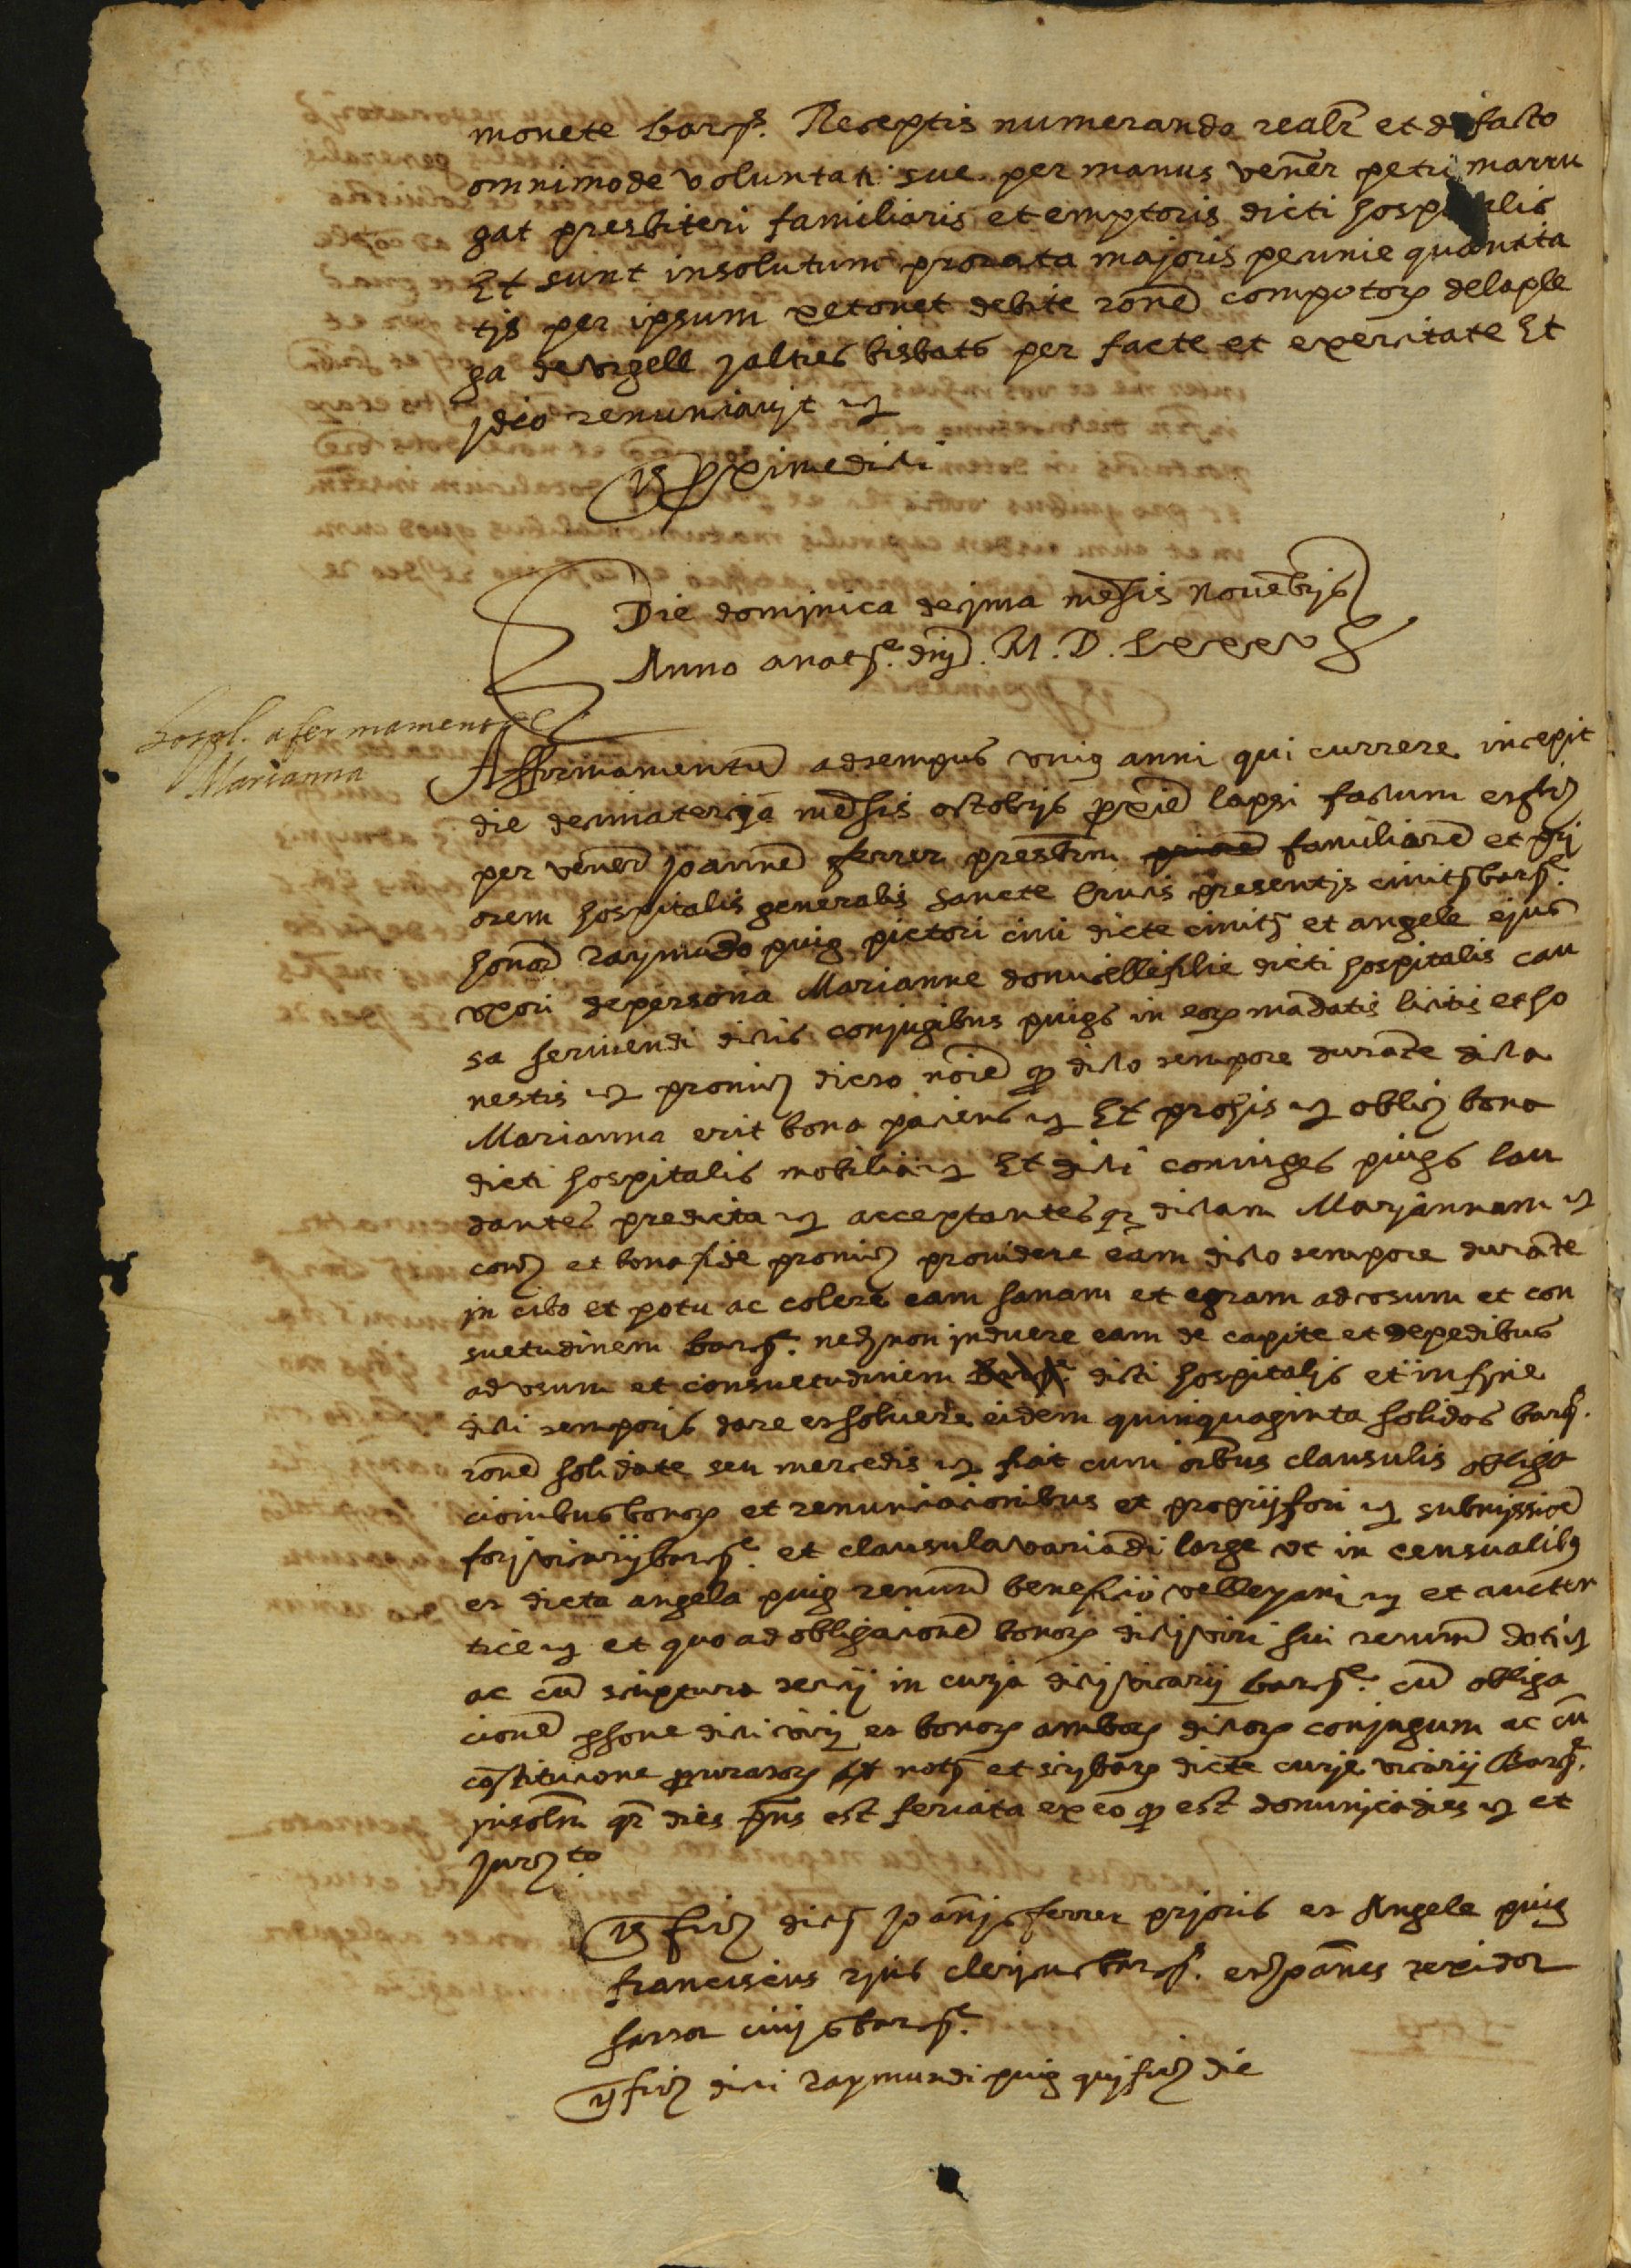 monete barc͠e. Receptis numerando realr̄ et de facto
omnimode voluntati sue per manus vener̄ petri marru
gat presbiteri familiaris et emptoris dicti hospitalis
Et sunt insolutum prorata majoris pecunie quantita
tis per ipsum debite rone͠ compotorꝝ de la ple
ga de vrgell y altres bisbats per facte et exercitate Et
ideo renunciavit ꝛc
Tˢ proxime dicti
Die dominica decima mensis Nouēbris
Anno anatᵉ. dnj̄. M. D. Lxxxv
hospl. afermament
Marianna
Affirmamentū ad tempus vnius anni qui currere incepit
die decimatercia mēsis octobris proxīe lapsi factum
per vener̄ joannē ferrer presbrm̄ familiarē et pri
orem hospitalis generalis sancte Crucis presentis ciuitˢ barcᵉ.
honor̄ raymūdo puig pictori ciui dicte ciuitˢ et angele ejus
vxori de persona Marianne domicelle filie dicti hospitalis cau
sa seruiendi dictis conjugibus puigs in eorꝝ mādatis licitis et ho
nestis ꝛc promitˢ dicto noīe ꝙ dicto tempore durāte dicta
Marianna erit bona paciens ꝛc Et pro his ꝛc obligˢ bona
dicti hospitalis mobilia ꝛc Et dicti coniuges puigs lau
dantes predicta ꝛc acceptantesqꝫ dictam Mariannam ꝛc
conˢ et bonafide promitˢ prouidere eam dicto tempore durāte
in cibo et potu ac colere eam sanam et egram ad vsum et con
suetudinem barcᵉ. necnon induere eam de capite et de pedibus
ad vsum et consuetudinem dicti hospitalis et in fine
dicti temporis dare et soluere eidem quinquaginta solidos barcᵉ.
ronē solidate seu mercedis ꝛc fiat cum oībus clausulis obliga
cionibus bonorꝝ et renunciacionibus et proprij fori ꝛc submissiōe
fori vicarij barcᵉ. et clausula variādi large vt in censualibꝰ
et dicta angela puig renunˢ beneficio velleyani ꝛc et aucten
tice ꝛc et quo ad obligacionē bonorꝝ dicti viri sui renunˢ doti ꝛc
ac cū scriptura tercij in curia dicti vicarij barcᵉ. cū obliga
cionē ꝑsone dicti viri et bonorꝝ amborꝝ dictorꝝ conjugum ac cū
cōstitucione procuratorꝝ notˢ et scribarꝝ dicte curie vicarij Barcᵉ.
insolm̄ qr̄ dies pn̄s est feriata ex eo ꝙ est dominica dies ꝛc et
jurᵗᵒ
Tˢ firˢ dictˢ joānis ferrer prioris et Angele puig
franciscus clericus barcᵉ. et joānes texidor
sartor ciuis barcᵉ.
Tˢ firˢ dicti raymundi puig qui firˢ die